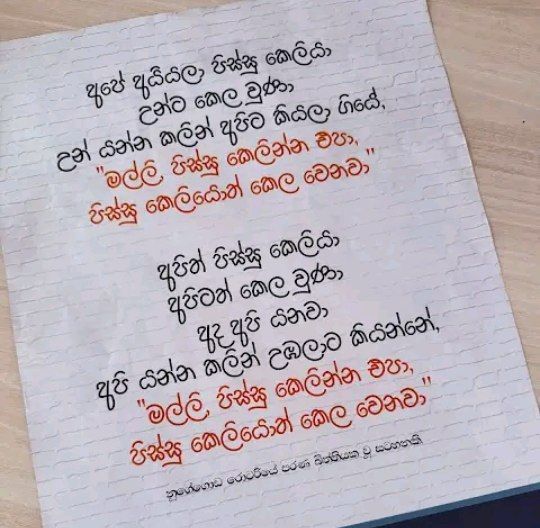 අපේ අයියලා පිස්සු කෙලියා
උන්ට කෙල වුණා
උන් යන්න කලින් අපිට කියලා ගියේ,
"මල්ලි, පිස්සු කෙලින්න එපා,
පිස්සු කෙලියොත් කෙල වෙනවා"
අපිත් පිස්සු කෙලියා
අපිටත් කෙල වුණා
අද අපි යනවා
අපි යන්න කලින් උඹලාට කියන්නේ,
"මල්ලි, පිස්සු කෙලින්න එපා,
පිස්සු කෙලියොත් කෙල වෙනවා"
නුගේගොඩ රොටරියේ පරණ බිත්තියක වූ සටහනකි